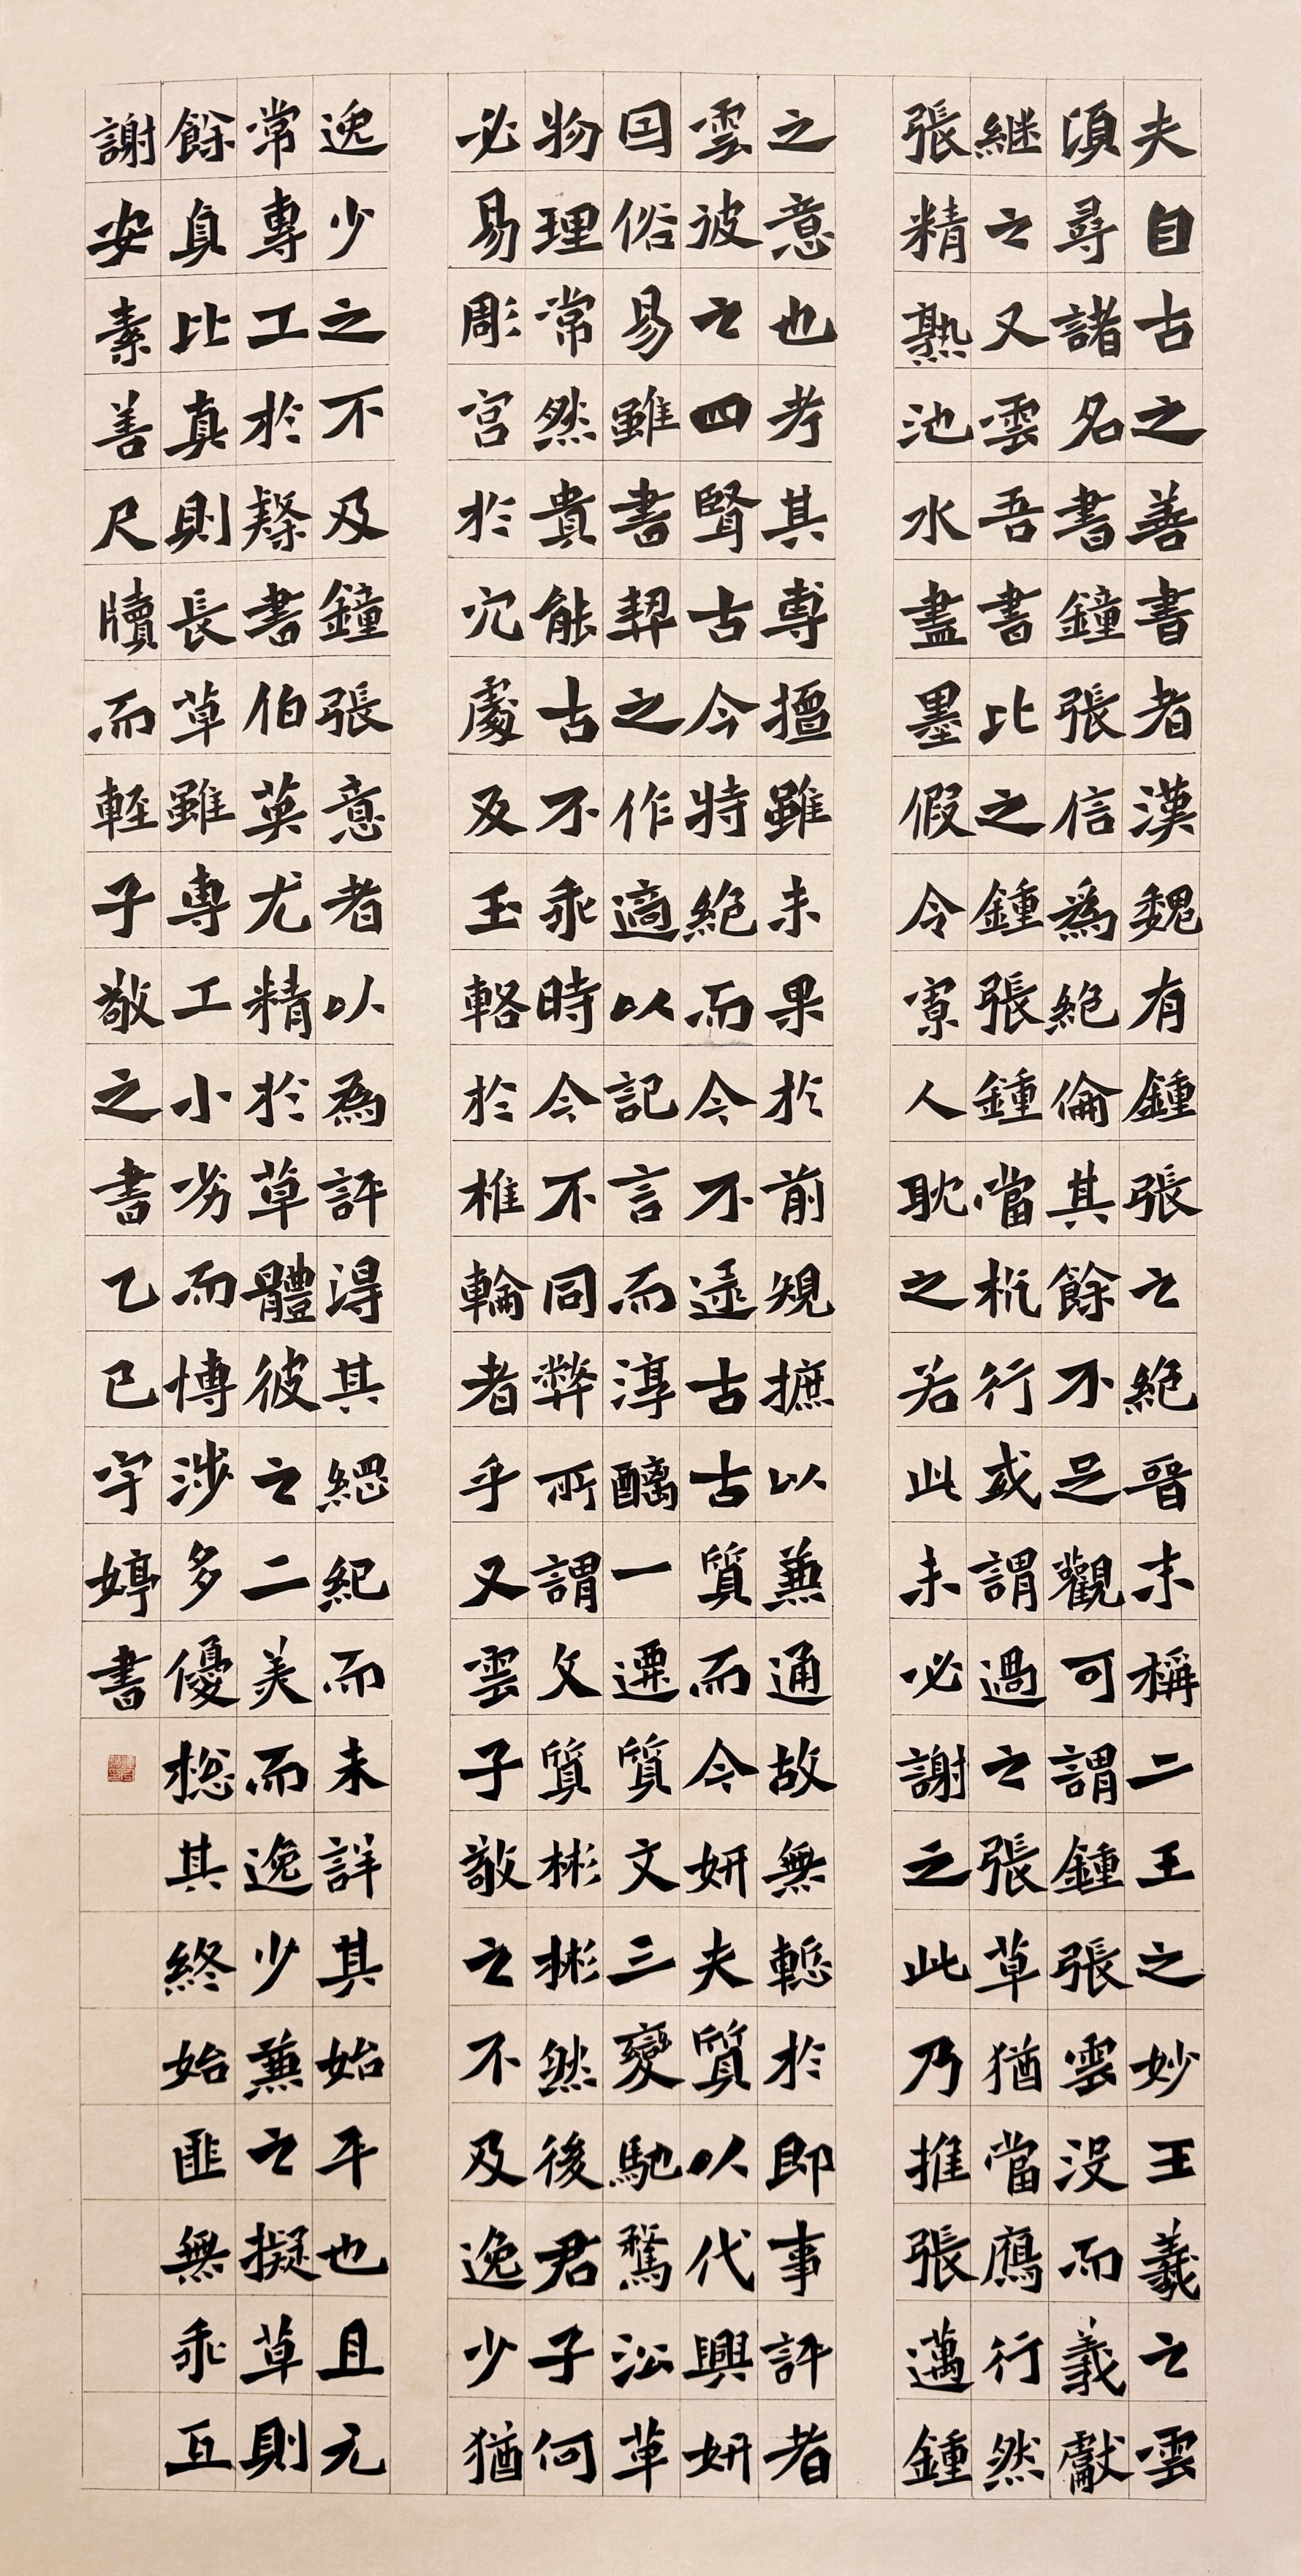 夫自古之善書者漢魏有鍾張之絕晉末稱二王之妙王羲之雲
須尋諸名書鐘張信為絕倫其餘不足觀可謂鍾張雲沒而羲獻
継之又雲吾書比之鍾張鍾當抗行或謂過之張草猶當鴈行然
張精熟池水盡墨假令寡人耽之若此未必謝之此乃推張邁鍾
之意也考其專擅雖未果於前規摭以兼通故無慙於即事評者
雲彼之四賢古今特絕而今不逮古古質而今妍夫質以代興妍
因俗易雖書契之作適以記言而淳醨一遷質文三變馳騖沿革
物理常然貴能古不乖時今不同弊所謂文質彬彬然後君子何
必易彫宮於穴處反玉輅於椎輪者乎又雲子敬之不及逸少猶
逸少之不及鐘張意者以為評得其綱紀而未詳其始卒也且元
常專工於隸書伯英尤精於草體彼之二美而逸少兼之擬草則
餘真比真則長草雖專工小劣而博涉多優揔其終始匪無乖互
謝安素善尺牘而輕子敬之書乙巳宇婷書